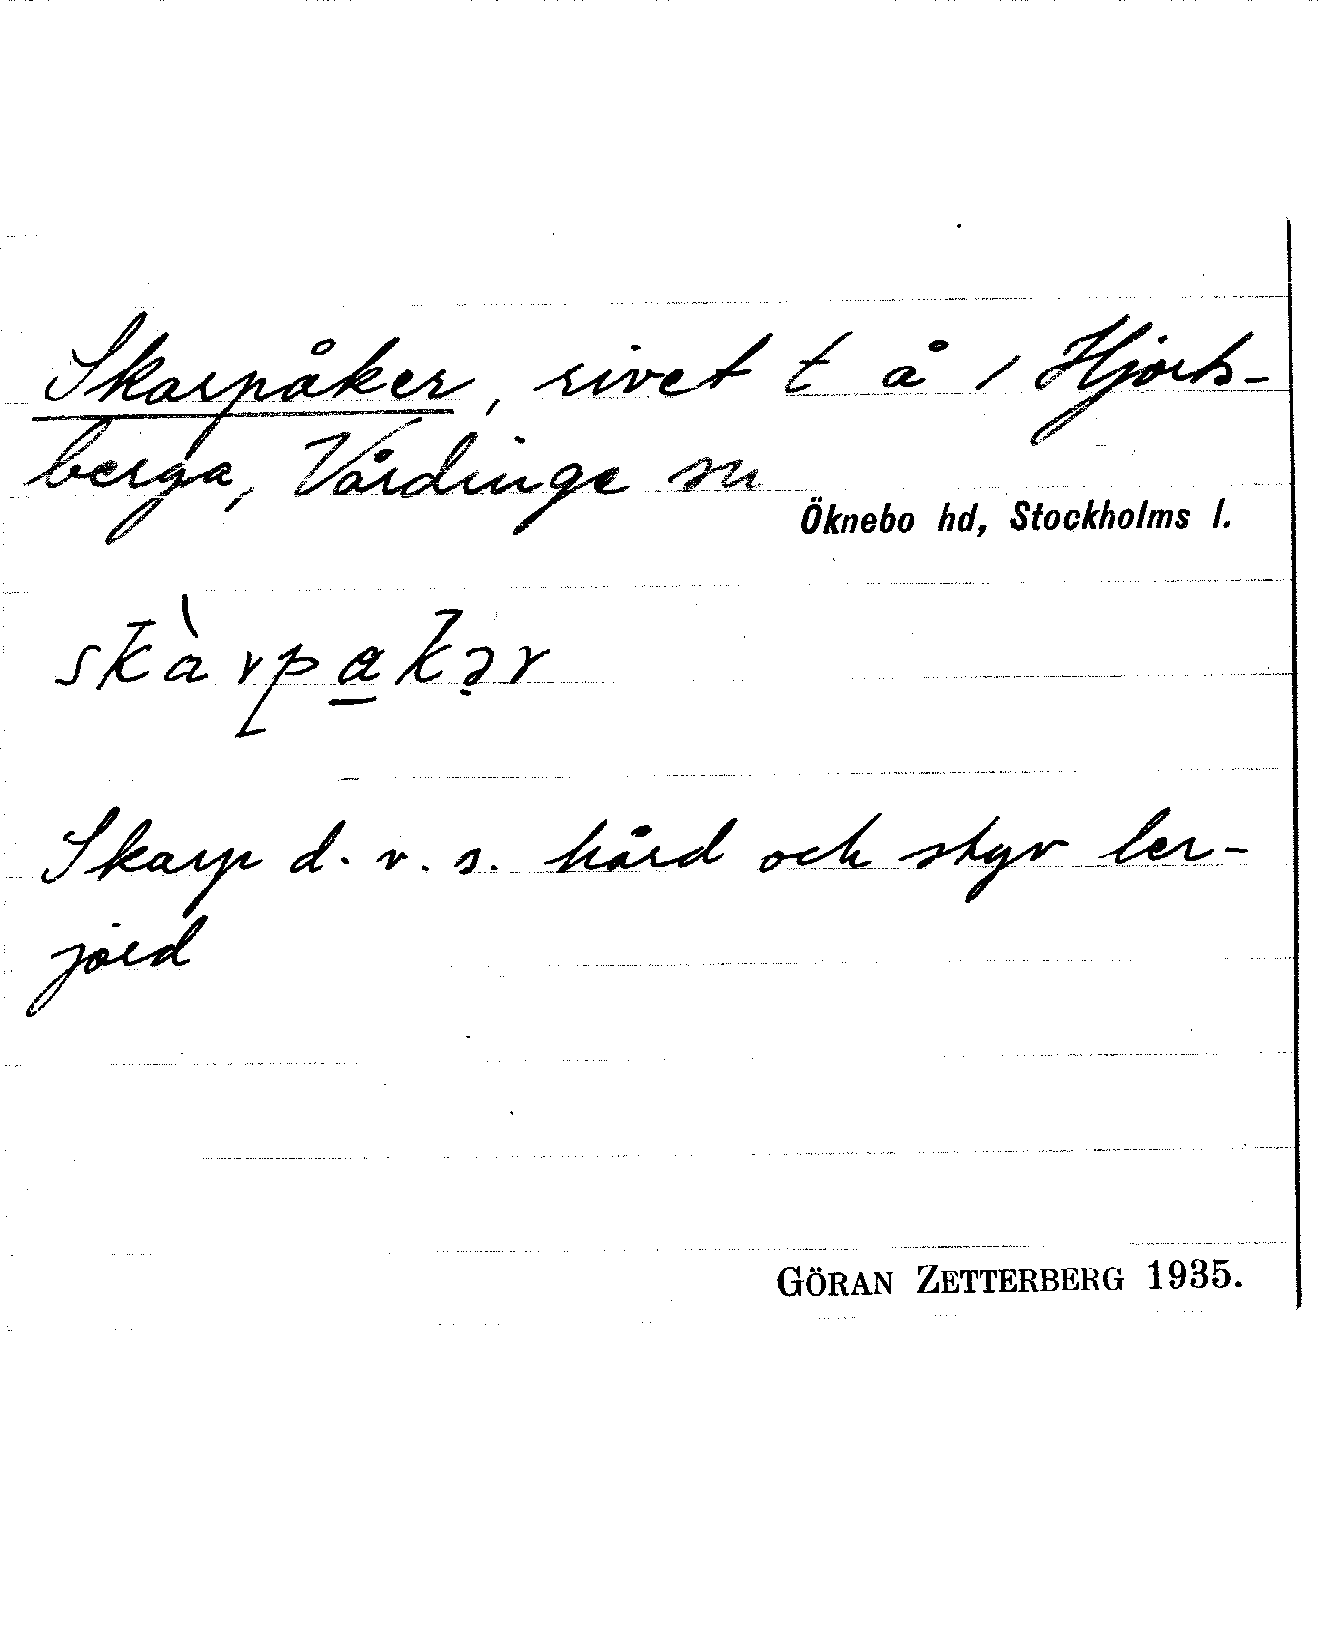 Skarpåker, rivet t å i Hjorts-
berga, Vårdinge sn
Öknebo hd, Stockholms l.
skàrpakər
Skarp d. v. s. hård och styv ler-
jord
GÖRAN ZETTERBERG 1935.